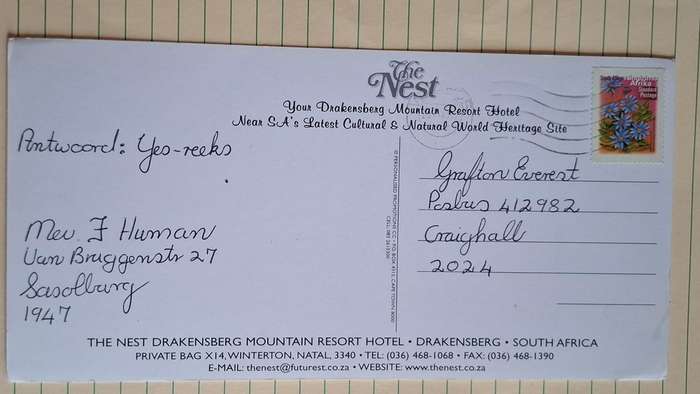 The
Nest
Your Drakensberg Mountain Resort Hotel
Near SA's Latest Cultural & Natural World Heritage Site
Afrika
Standard
Postage
Antwoord: Yes-reeks
Mev. F Human
Van Bruggenstr 27
Sasolburg
1947
Grafton Everest
Posbus 412982
Craighall
2024
THE NEST DRAKENSBERG MOUNTAIN RESORT HOTEL • DRAKENSBERG • SOUTH AFRICA
PRIVATE BAG X14, WINTERTON, NATAL, 3340 • TEL: (036) 468-1068 • FAX: (036) 468-1390
E-MAIL: thenest@futurest.co.za • WEBSITE: www.thenest.co.za